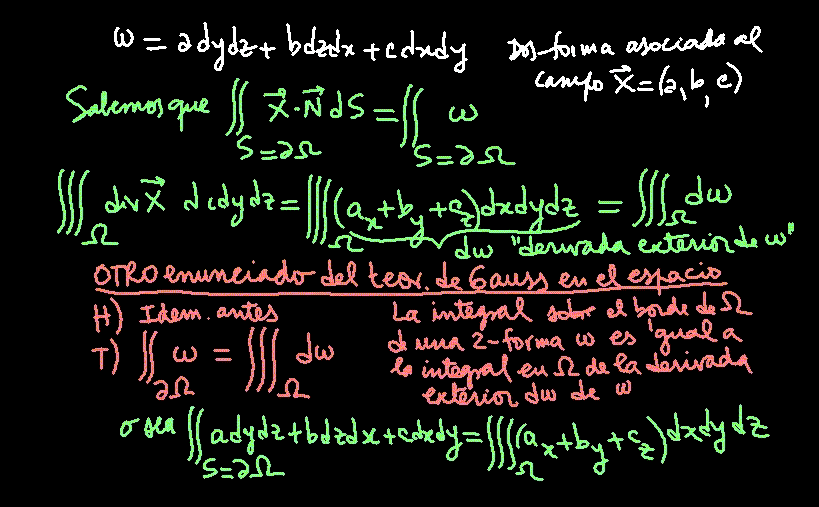 ω = adydz + bdzdx + cdxdy Dos-forma asociada al
campo X⃗ = (a, b, c)
Sabemos que ∬_{S=∂Ω} X⃗·N⃗ dS = ∬_{S=∂Ω} ω
∭_Ω div X⃗ dxdydz = ∭_Ω (a_x + b_y + c_z) dxdydz = ∭_Ω dω
dω "derivada exterior de ω"
OTRO enunciado del teor. de Gauss en el espacio
H) Idem. antes
T) ∬_{∂Ω} ω = ∭_Ω dω
La integral sobre el borde de Ω
de una 2-forma ω es igual a
la integral en Ω de la derivada
exterior dω de ω
o sea ∬_{S=∂Ω} adydz + bdzdx + cdxdy = ∭_Ω (a_x + b_y + c_z) dxdydz